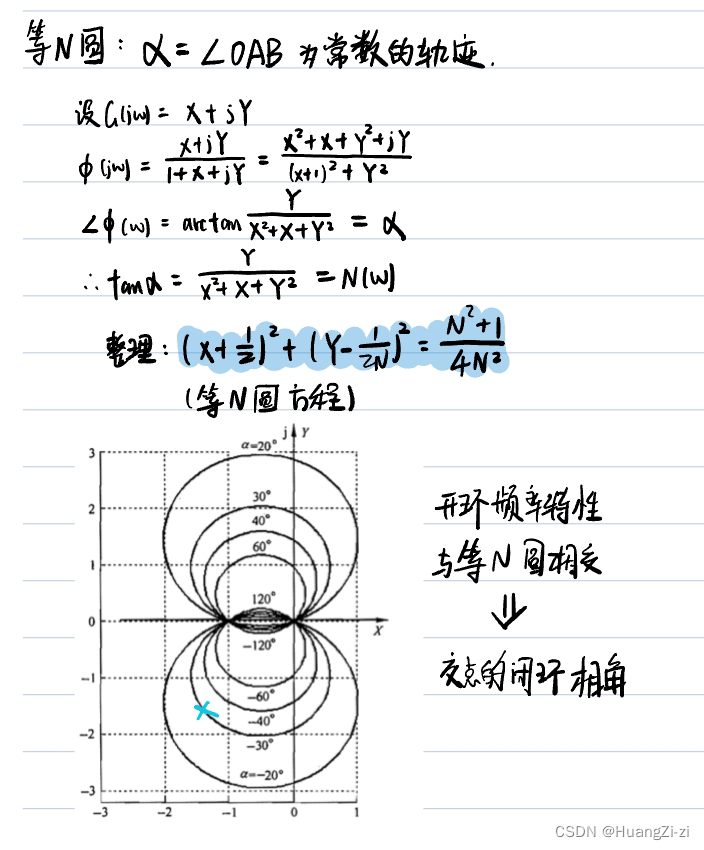 等N圆：α=∠OAB为常数的轨迹.
设G(jω)=X+jY
ϕ(jω)=(X+jY)/(1+X+jY)=(X²+X+Y²+jY)/((X+1)²+Y²)
∠ϕ(ω)=arctan Y/(X²+X+Y²)=α
∴tanα=Y/(X²+X+Y²)=N(ω)
整理：(X+1/2)²+(Y-1/2N)²=(N²+1)/4N²
(等N圆方程)
j Y
α=20°
3
30°
2
40°
60°
1
120°
0
X
-120°
-1
-60°
-40°
-2
-30°
α=-20°
-3
-3 -2 -1 0 1
开环频率特性
与等N圆相交
⇓
交点的闭环相角
CSDN @HuangZi-zi